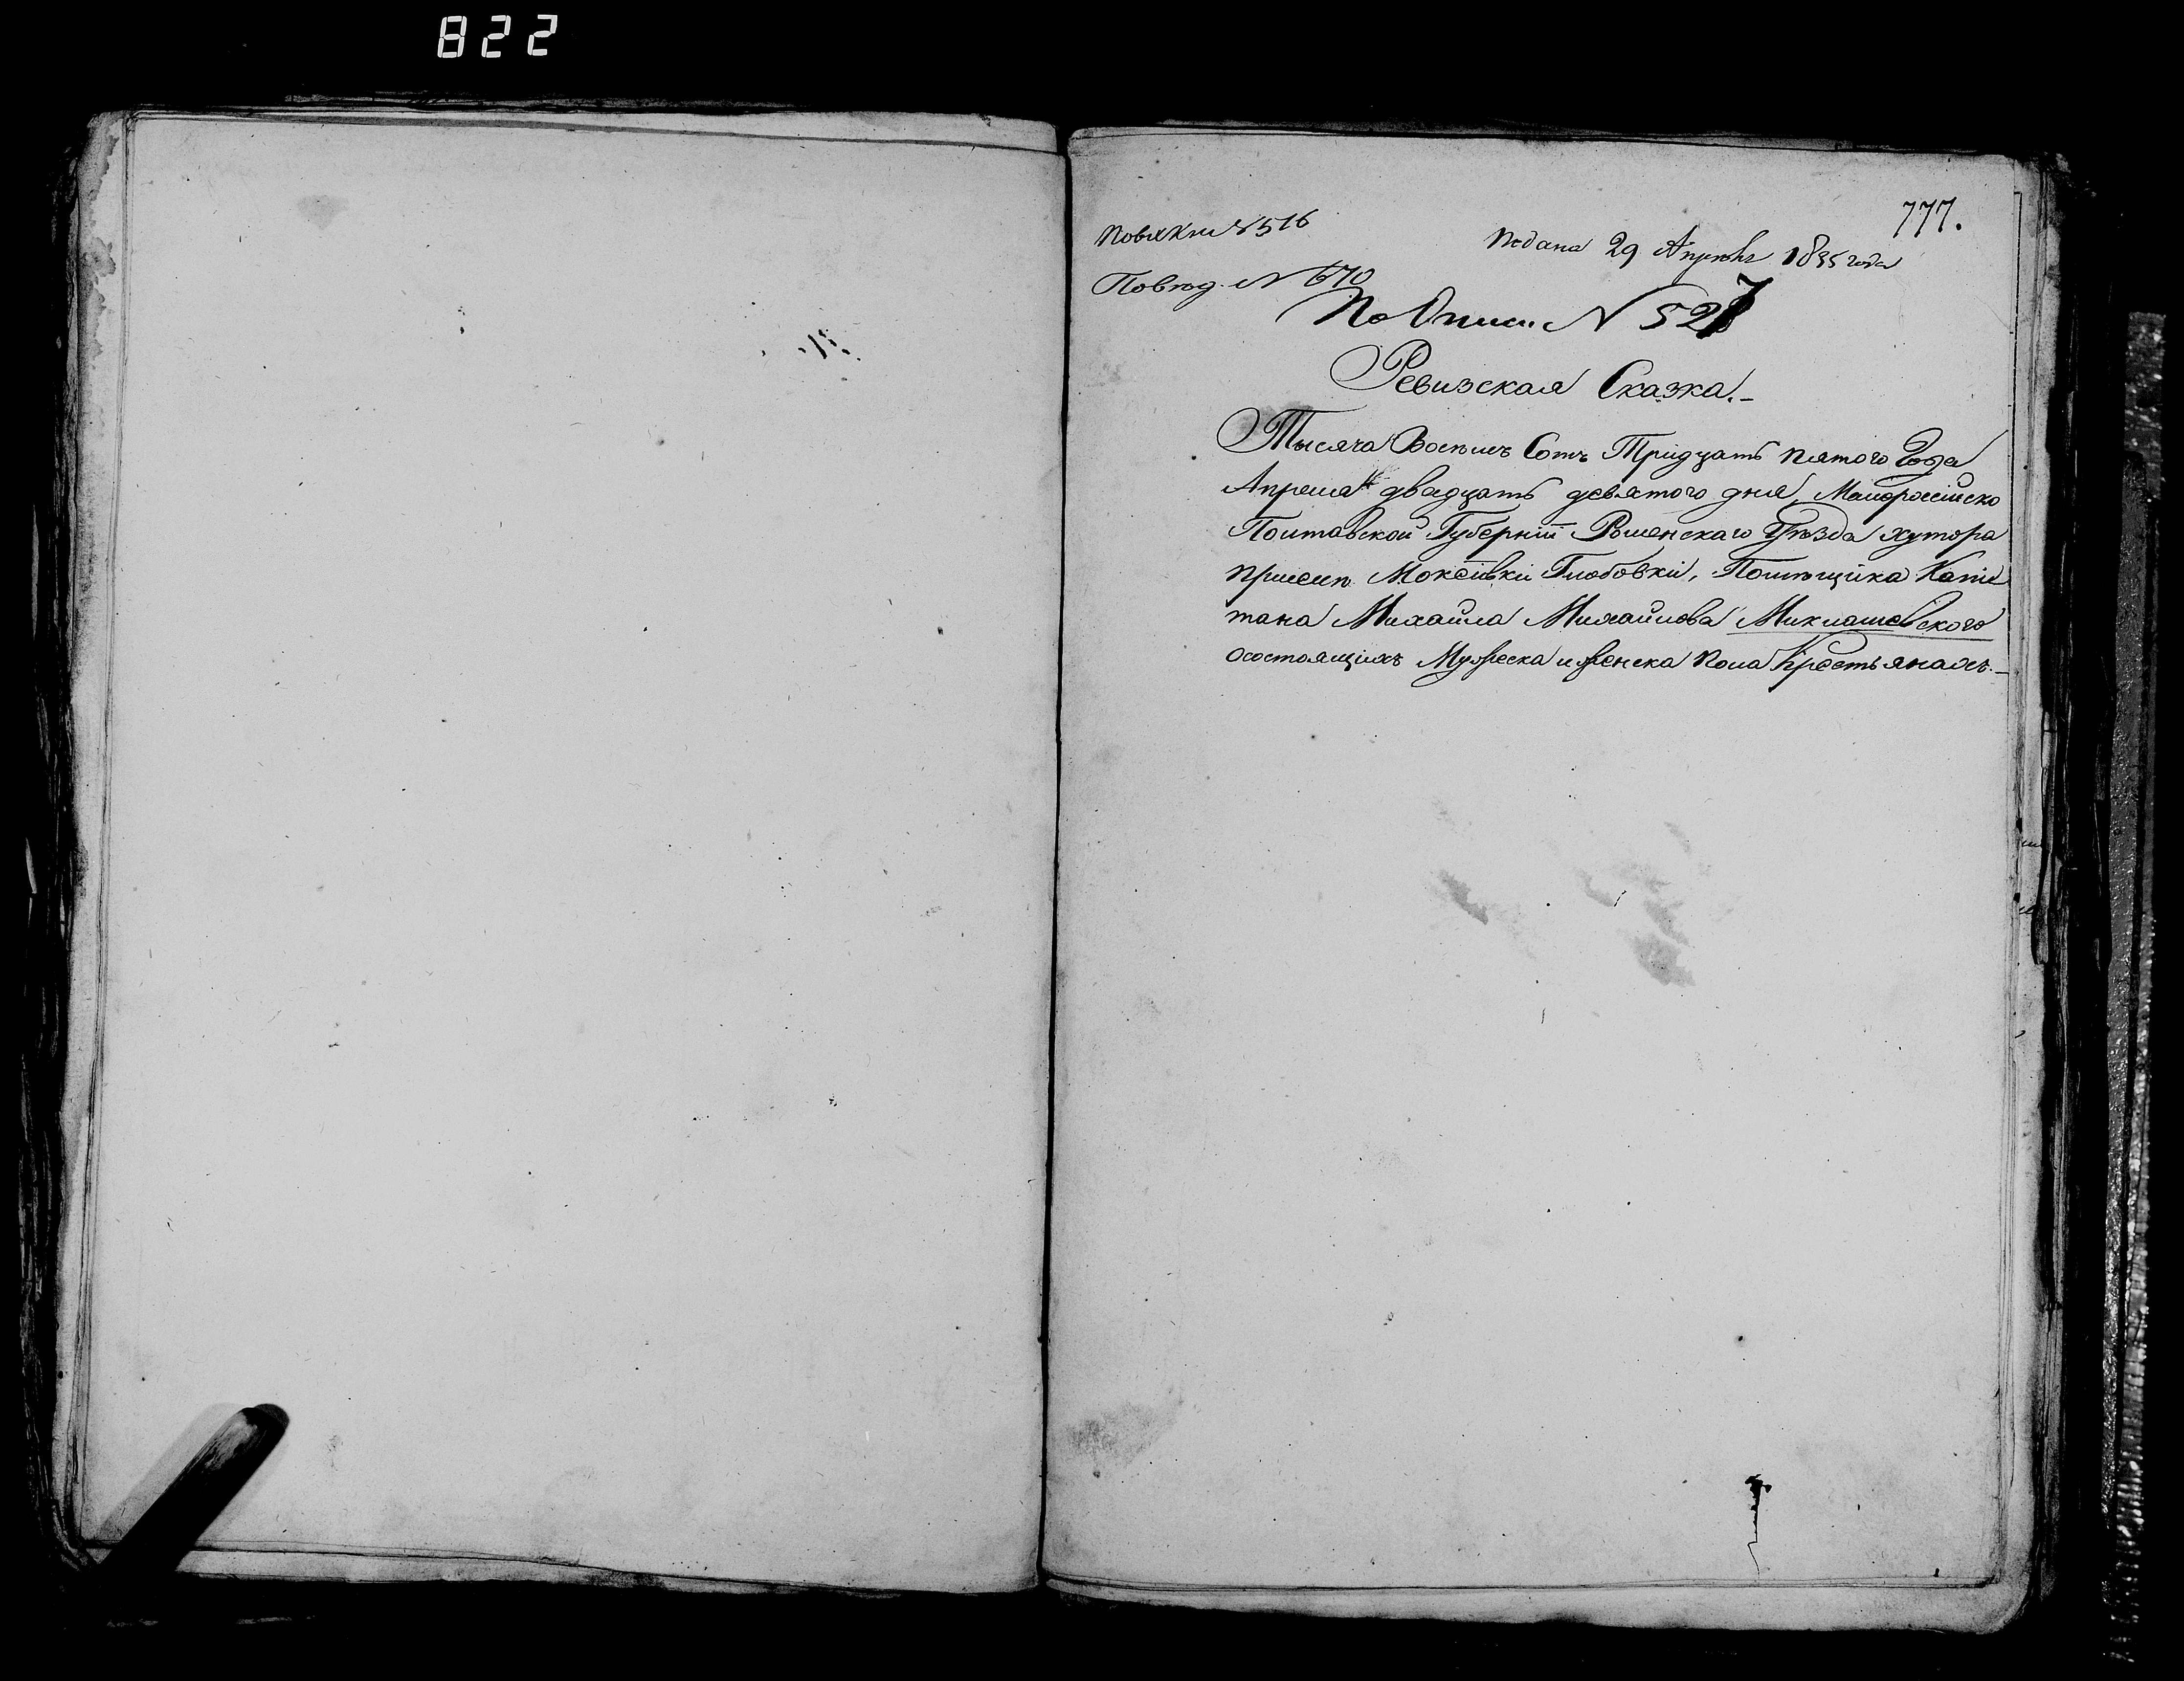 822
777.
№ 516
Подана 29 Апреля 1835 года
№ 670
По Описи N 527
Ревизская Сказка.
Тысяча Восемъ Сотъ Тридцать пятого Года
Апреля двадцать девятого дня, Малороссийско
Полтавской Губернiи Роменскаго Уѣзда хутора
присел. Моксiевки Глюбовки, Помѣщика Капи
тана Михайла Михайлова Миклашевского
осостоящихъ Мужеска и женска пола Крестьянахъ.